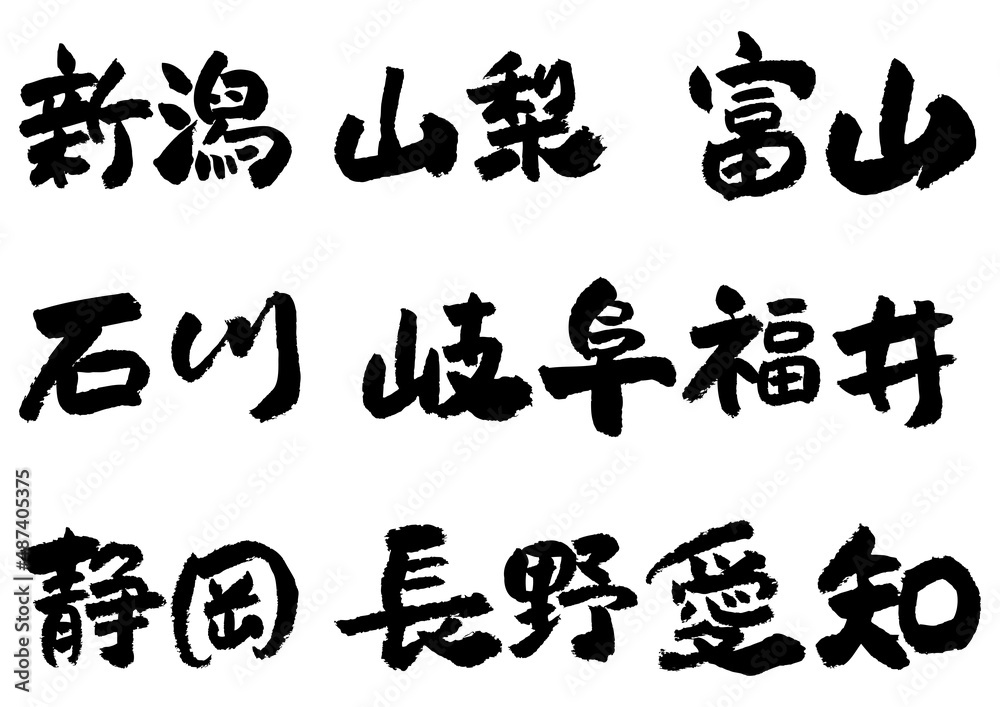 新潟 山梨 富山
石川 岐阜 福井
静岡 長野 愛知
Adobe Stock | #487405375